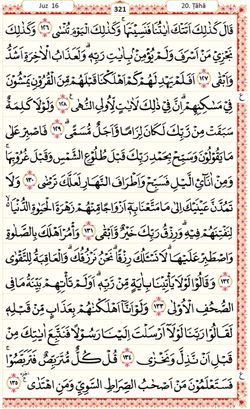 Juz 16
321
20. Ṭāhā
قَالَ كَذَٰلِكَ أَتَتْكَ ءَايَٰتُنَا فَنَسِيتَهَا ۖ وَكَذَٰلِكَ ٱلْيَوْمَ تُنسَىٰ ١٢٦ وَكَذَٰلِكَ
نَجْزِى مَنْ أَسْرَفَ وَلَمْ يُؤْمِنۢ بِـَٔايَٰتِ رَبِّهِۦ ۚ وَلَعَذَابُ ٱلْـَٔاخِرَةِ أَشَدُّ
وَأَبْقَىٰٓ ١٢٧ أَفَلَمْ يَهْدِ لَهُمْ كَمْ أَهْلَكْنَا قَبْلَهُم مِّنَ ٱلْقُرُونِ يَمْشُونَ
فِى مَسَٰكِنِهِمْ ۗ إِنَّ فِى ذَٰلِكَ لَـَٔايَٰتٍ لِّأُو۟لِى ٱلنُّهَىٰ ١٢٨ وَلَوْلَا كَلِمَةٌ
سَبَقَتْ مِن رَّبِّكَ لَكَانَ لِزَامًا وَأَجَلٌ مُّسَمًّى ١٢٩ فَٱصْبِرْ عَلَىٰ
مَا يَقُولُونَ وَسَبِّحْ بِحَمْدِ رَبِّكَ قَبْلَ طُلُوعِ ٱلشَّمْسِ وَقَبْلَ غُرُوبِهَا ۖ
وَمِنْ ءَانَآئِ ٱلَّيْلِ فَسَبِّحْ وَأَطْرَافَ ٱلنَّهَارِ لَعَلَّكَ تَرْضَىٰ ١٣٠ وَلَا
تَمُدَّنَّ عَيْنَيْكَ إِلَىٰ مَا مَتَّعْنَا بِهِۦٓ أَزْوَٰجًا مِّنْهُمْ زَهْرَةَ ٱلْحَيَوٰةِ ٱلدُّنْيَا
لِنَفْتِنَهُمْ فِيهِ ۚ وَرِزْقُ رَبِّكَ خَيْرٌ وَأَبْقَىٰ ١٣١ وَأْمُرْ أَهْلَكَ بِٱلصَّلَوٰةِ
وَٱصْطَبِرْ عَلَيْهَا ۖ لَا نَسْـَٔلُكَ رِزْقًا ۖ نَّحْنُ نَرْزُقُكَ ۗ وَٱلْعَٰقِبَةُ لِلتَّقْوَىٰ
١٣٢ وَقَالُوا۟ لَوْلَا يَأْتِينَا بِـَٔايَةٍ مِّن رَّبِّهِۦٓ ۚ أَوَلَمْ تَأْتِهِم بَيِّنَةُ مَا فِى
ٱلصُّحُفِ ٱلْأُولَىٰ ١٣٣ وَلَوْ أَنَّآ أَهْلَكْنَٰهُم بِعَذَابٍ مِّن قَبْلِهِۦ
لَقَالُوا۟ رَبَّنَا لَوْلَآ أَرْسَلْتَ إِلَيْنَا رَسُولًا فَنَتَّبِعَ ءَايَٰتِكَ مِن
قَبْلِ أَن نَّذِلَّ وَنَخْزَىٰ ١٣٤ قُلْ كُلٌّ مُّتَرَبِّصٌ فَتَرَبَّصُوا۟ ۖ
فَسَتَعْلَمُونَ مَنْ أَصْحَٰبُ ٱلصِّرَٰطِ ٱلسَّوِىِّ وَمَنِ ٱهْتَدَىٰ ١٣٥